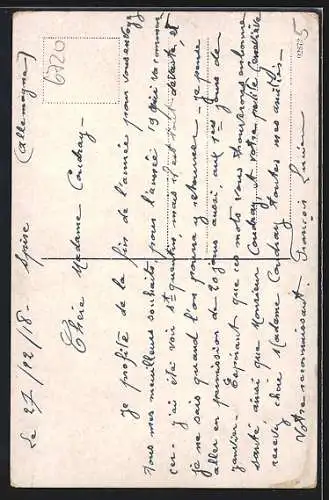 Le 27/12/18 - Spire (Allemagne)
Chère Madame Coudray -
je profite de la fin de l'année pour vous envoyer
tous mes meilleurs souhaits, pour l'année 19 qui va commen
cer - j'ai été voir St quentin, mais il est tout détruit, et
je ne sais quand l'on pourra y retourner - je pense
aller en permission de 20 jours aussi, aux 1ers jours de
janvier - Espérant que ces mots vous trouverons en bonne
santé ainsi que Monsieur Coudray, et votre petite
recevez chère Madame Coudray toutes mes amitiés -
Votre reconnaissant François Lucien
6920
5